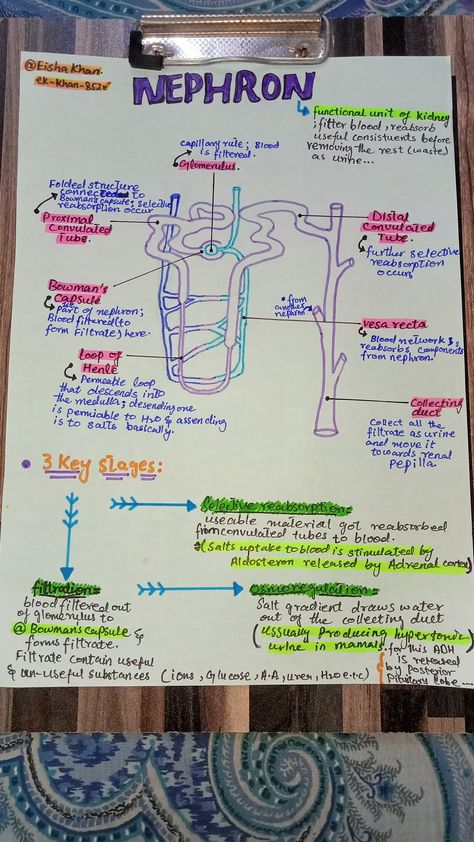 @Eisha Khan.
ek-Khan-852
NEPHRON
functional unit of kidney
; filter blood, reabsorb
useful consistuents before
removing the rest (waste)
as urine...
capillary rute; Blood
is filtered.
Glomerulus.
Folded structure
connected to
Bowman's capsule; selective
reabsorption occur
Proximal
Convulated
Tube.
Distal
Convulated
Tube.
further selective
reabsorption
occurs
Bowman's
Capsule
part of nephron;
Blood filtered (to
form Filtrate) here.
• from
another
nephron
vesa recta
Blood network 3,
reabsorbs components
from nephron.
loop of
Henle
Permeable loop
that descends into
the medulla; desending one
is permiable to H2O & assending
is to salts basically.
Collecting
duct
Collect all the
filtrate as urine
and move it
towards renal
pepilla.
• 3 Key stages:
Selective reabsorption:
useable material got reabsorbed
from convulated tubes to blood.
(salts uptake to blood is stimulated by
Aldosteron released by Adrenal cortex)
filtration:
blood filtered out
of glomerulus to
@ Bowman's capsule &
forms filtrate.
Filtrate contain useful
& un-useful substances (ions, Glucose, A.A, urer, H2O e.t.c)
osmoregulation:
Salt gradient draws water
out of the collecting duct
(ussually Producing hypertonic
urine in mamals.
for this ADH
is released
by Posterior
Pitutary Lobe....